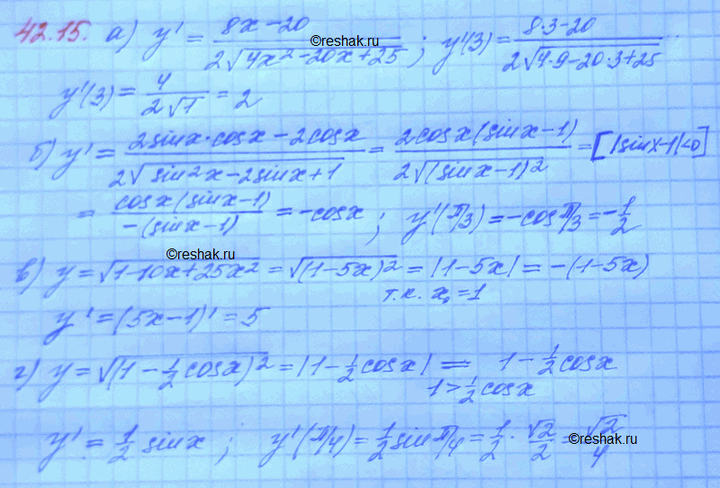 42.15. а) y' = (8x-20)/(2√(4x²-20x+25)); y'(3) = (8·3-20)/(2√(4·9-20·3+25))
©reshak.ru
y'(3) = 4/(2√1) = 2
б) y' = (2sinx·cosx-2cosx)/(2√(sin²x-2sinx+1)) = (2cosx(sinx-1))/(2√(sinx-1)²) = [|sinx-1|<0]
= (cosx(sinx-1))/(-(sinx-1)) = -cosx; y'(π/3) = -cosπ/3 = -1/2
©reshak.ru
в) y = √(1-10x+25x²) = √(1-5x)² = |1-5x| = -(1-5x)
т.к. x₀=1
y' = (5x-1)' = 5
г) y = √(1-½cosx)² = |1-½cosx| = 1-½cosx
1>½cosx
y' = ½ sinx; y'(π/4) = ½ sinπ/4 = ½·√2/2 = √2/4
©reshak.ru